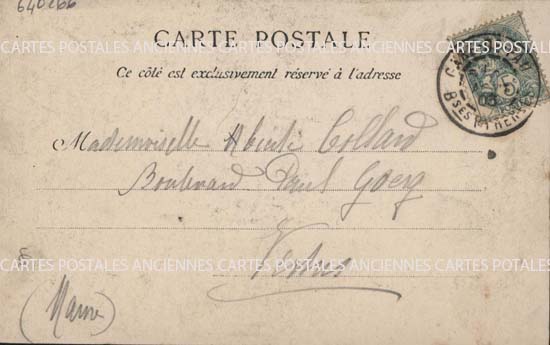 640266
CARTE POSTALE
CARTES POSTALES ANCIENNES CARTES POSTALES ANCIENNES CARTES POSTALES
Ce côté est exclusivement réservé à l'adresse
BSES PYRENEES
Mademoiselle Collard
Boulevard Paul Goerg
CARTES POSTALES ANCIENNES CARTES POSTALES ANCIENNES CARTES POSTALES
Vertus
(Marne)